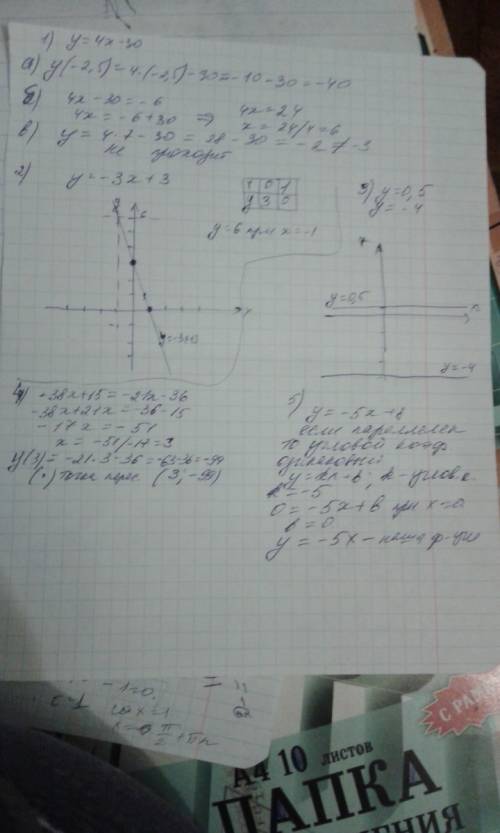 1) y = 4x-30
а) y(-2,5) = 4·(-2,5)-30 = -10-30 = -40
б) 4x-30 = -6
4x = -6+30 ⇒ 4x = 24
x = 24/4 = 6
в) y = 4·7-30 = 28-30 = -2 ≠ -3
не проходит
2) y = -3x+3
0 1
y 3 0
y = 6 при x = -1
y
6
x
y = -3x+3
3) y = 0,5
y = -4
y = 0,5
x
y = -4
4) -38x+15 = -21x-36
-38x+21x = -36-15
-17x = -51
x = -51/-17 = 3
y(3) = -21·3-36 = -63-36 = -99
(·) Точка перес. (3; -99)
5) y = -5x+8
если параллелен
то угловой коэф
одинаковый
y = kx+b, k - углов к
k = -5
0 = -5x+b при x=0
b = 0
y = -5x - наша ф-ция
-1=0
π/2 + πn
С РА
А4 10 листов
ПАПКА